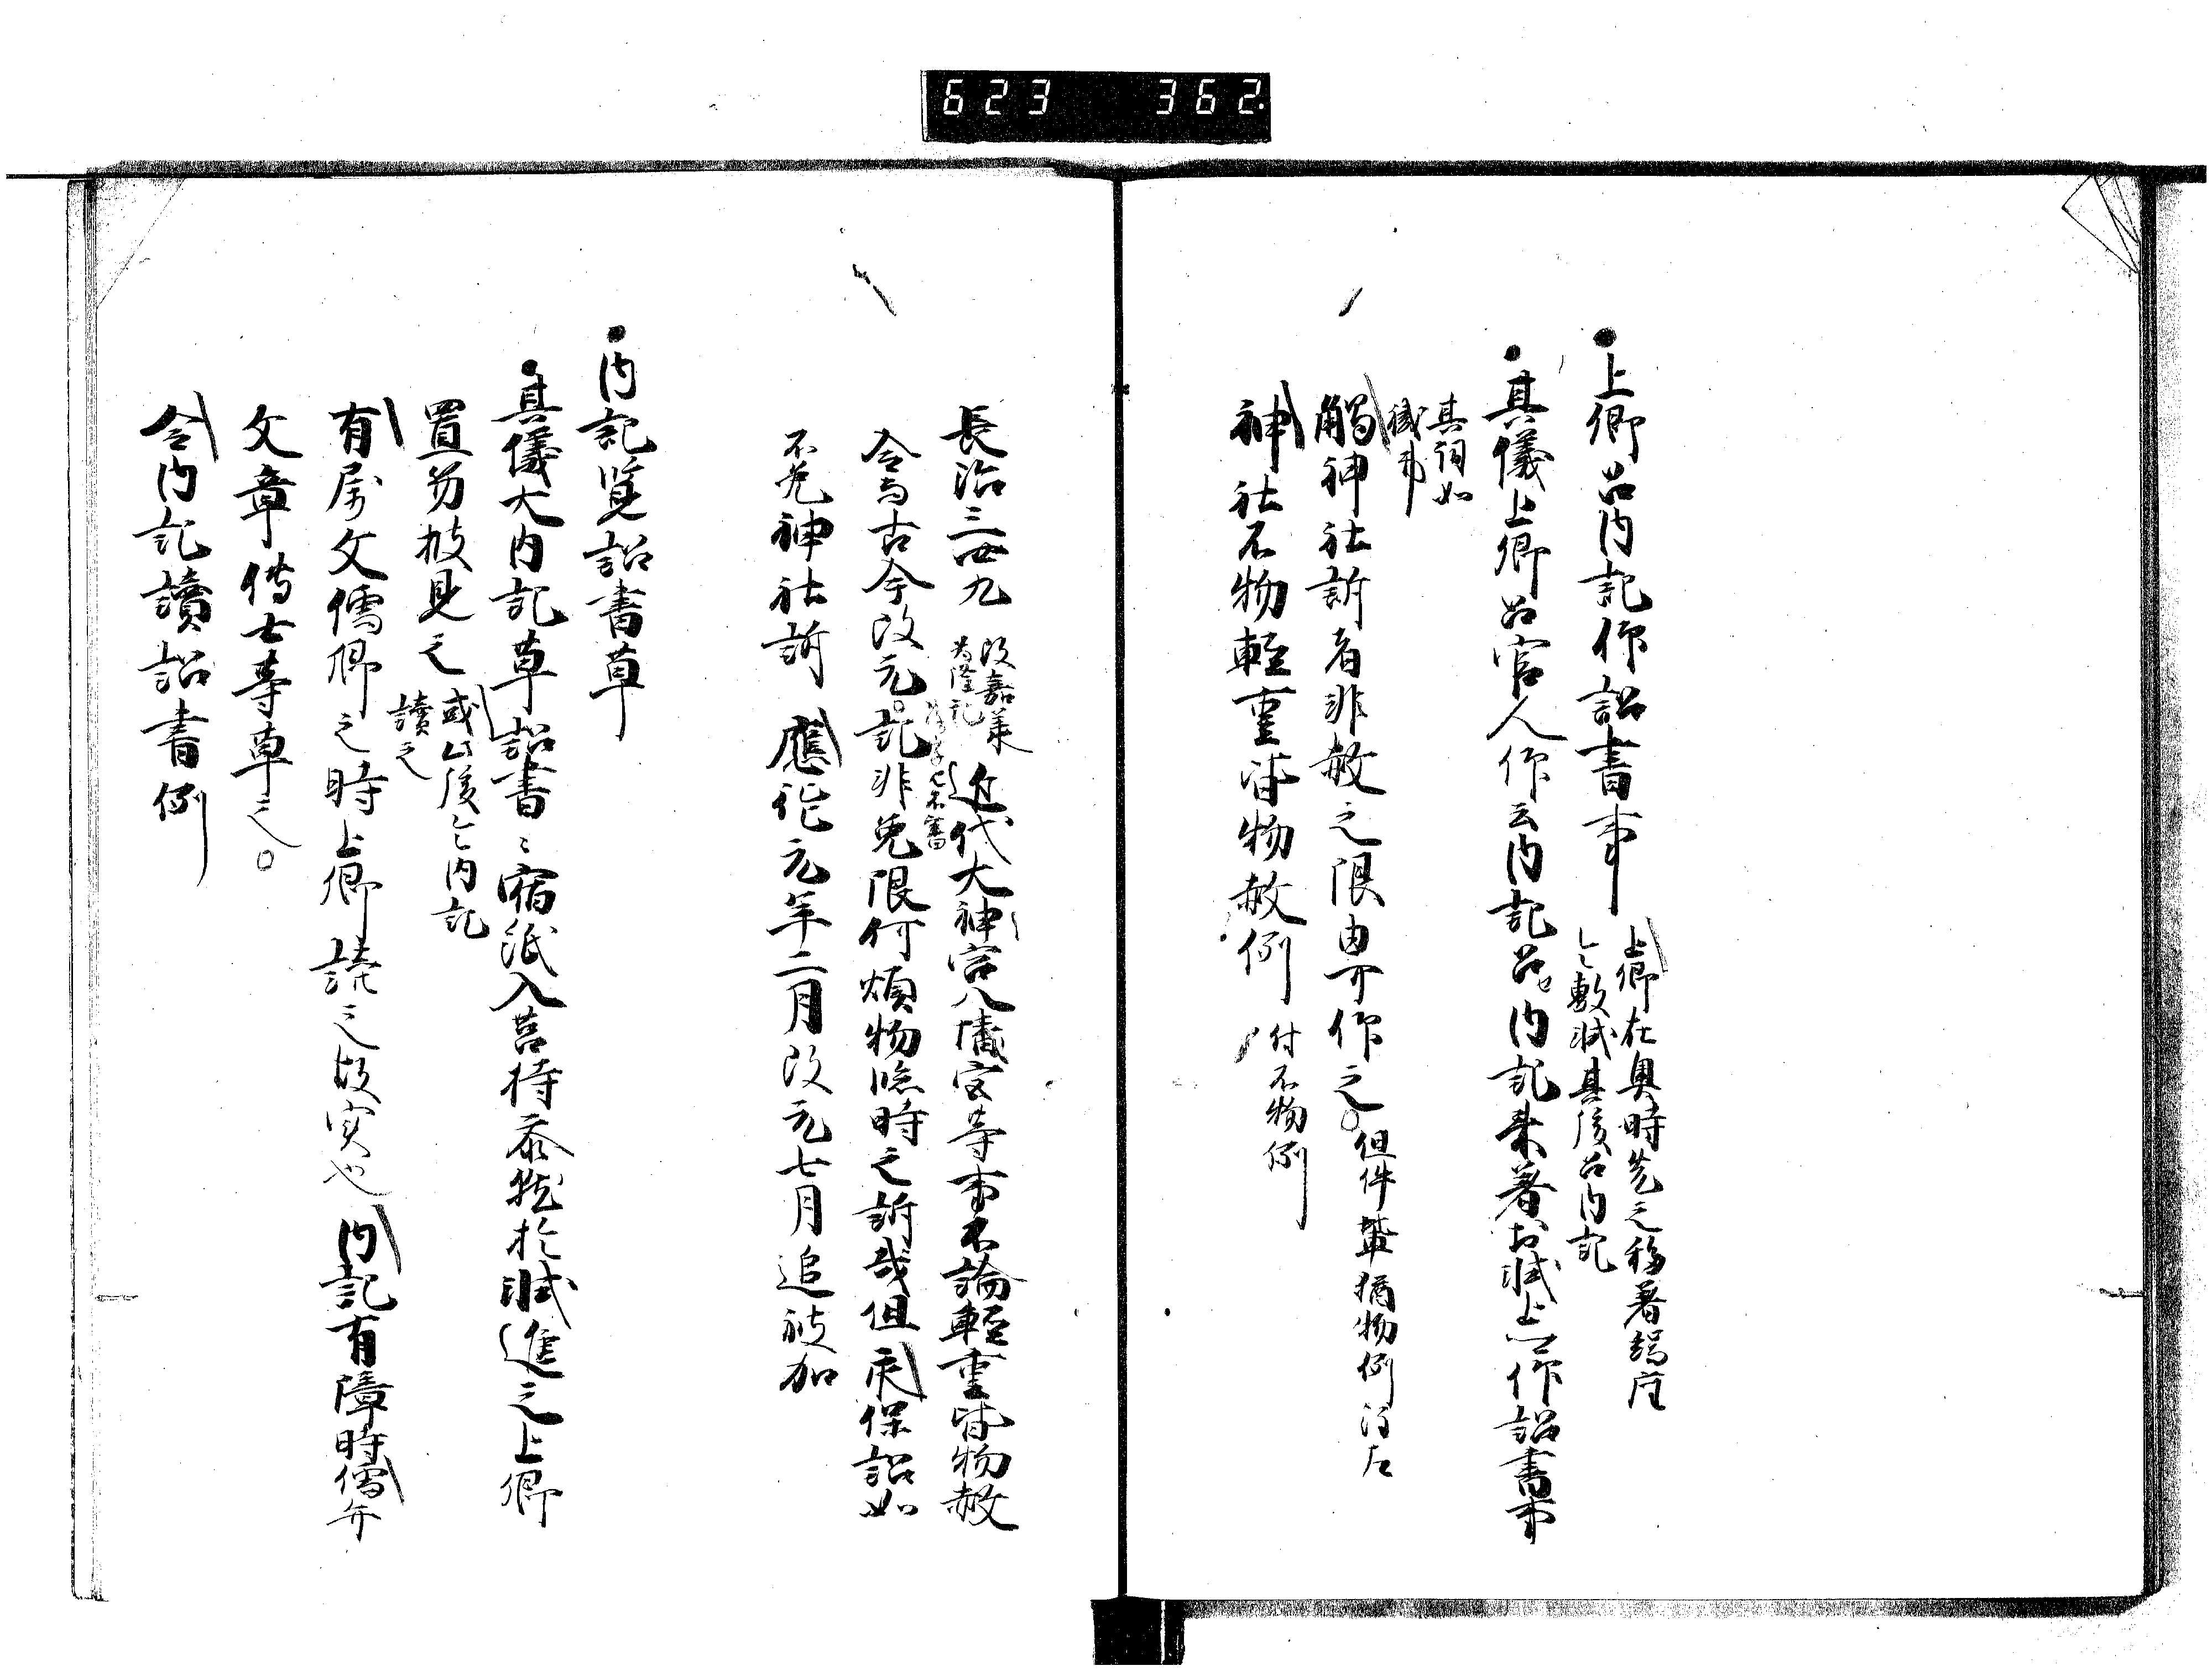 623 362
上卿召内記作詔書事
上卿在奥時先之移着端座
令敷軾其後召内記
其儀上卿召官人作云内記召セ内記来着お軾上作詔書事
其詞如
職事
觸神社訴者非赦之限由可作之但件輩猶物例注左
神社不物軽重皆物赦例
付不物例
長治三四九
改嘉承
為隆記
近代大神宮八幡宮等事不論軽重皆物赦
令与古今改元記非免限何煩物臨時之訴哉但天保詔如
不免神社訴
應保元年二月改元七月追被加
内記覧詔書草
其儀大内記草詔書〻宿紙入莒持参就於軾進之上卿
置笏披見之
或此後令内記
讀之
有属文儒卿之時上卿読之故実也
内記有障時儒弁
文章博士等草之
令内記讀詔書例